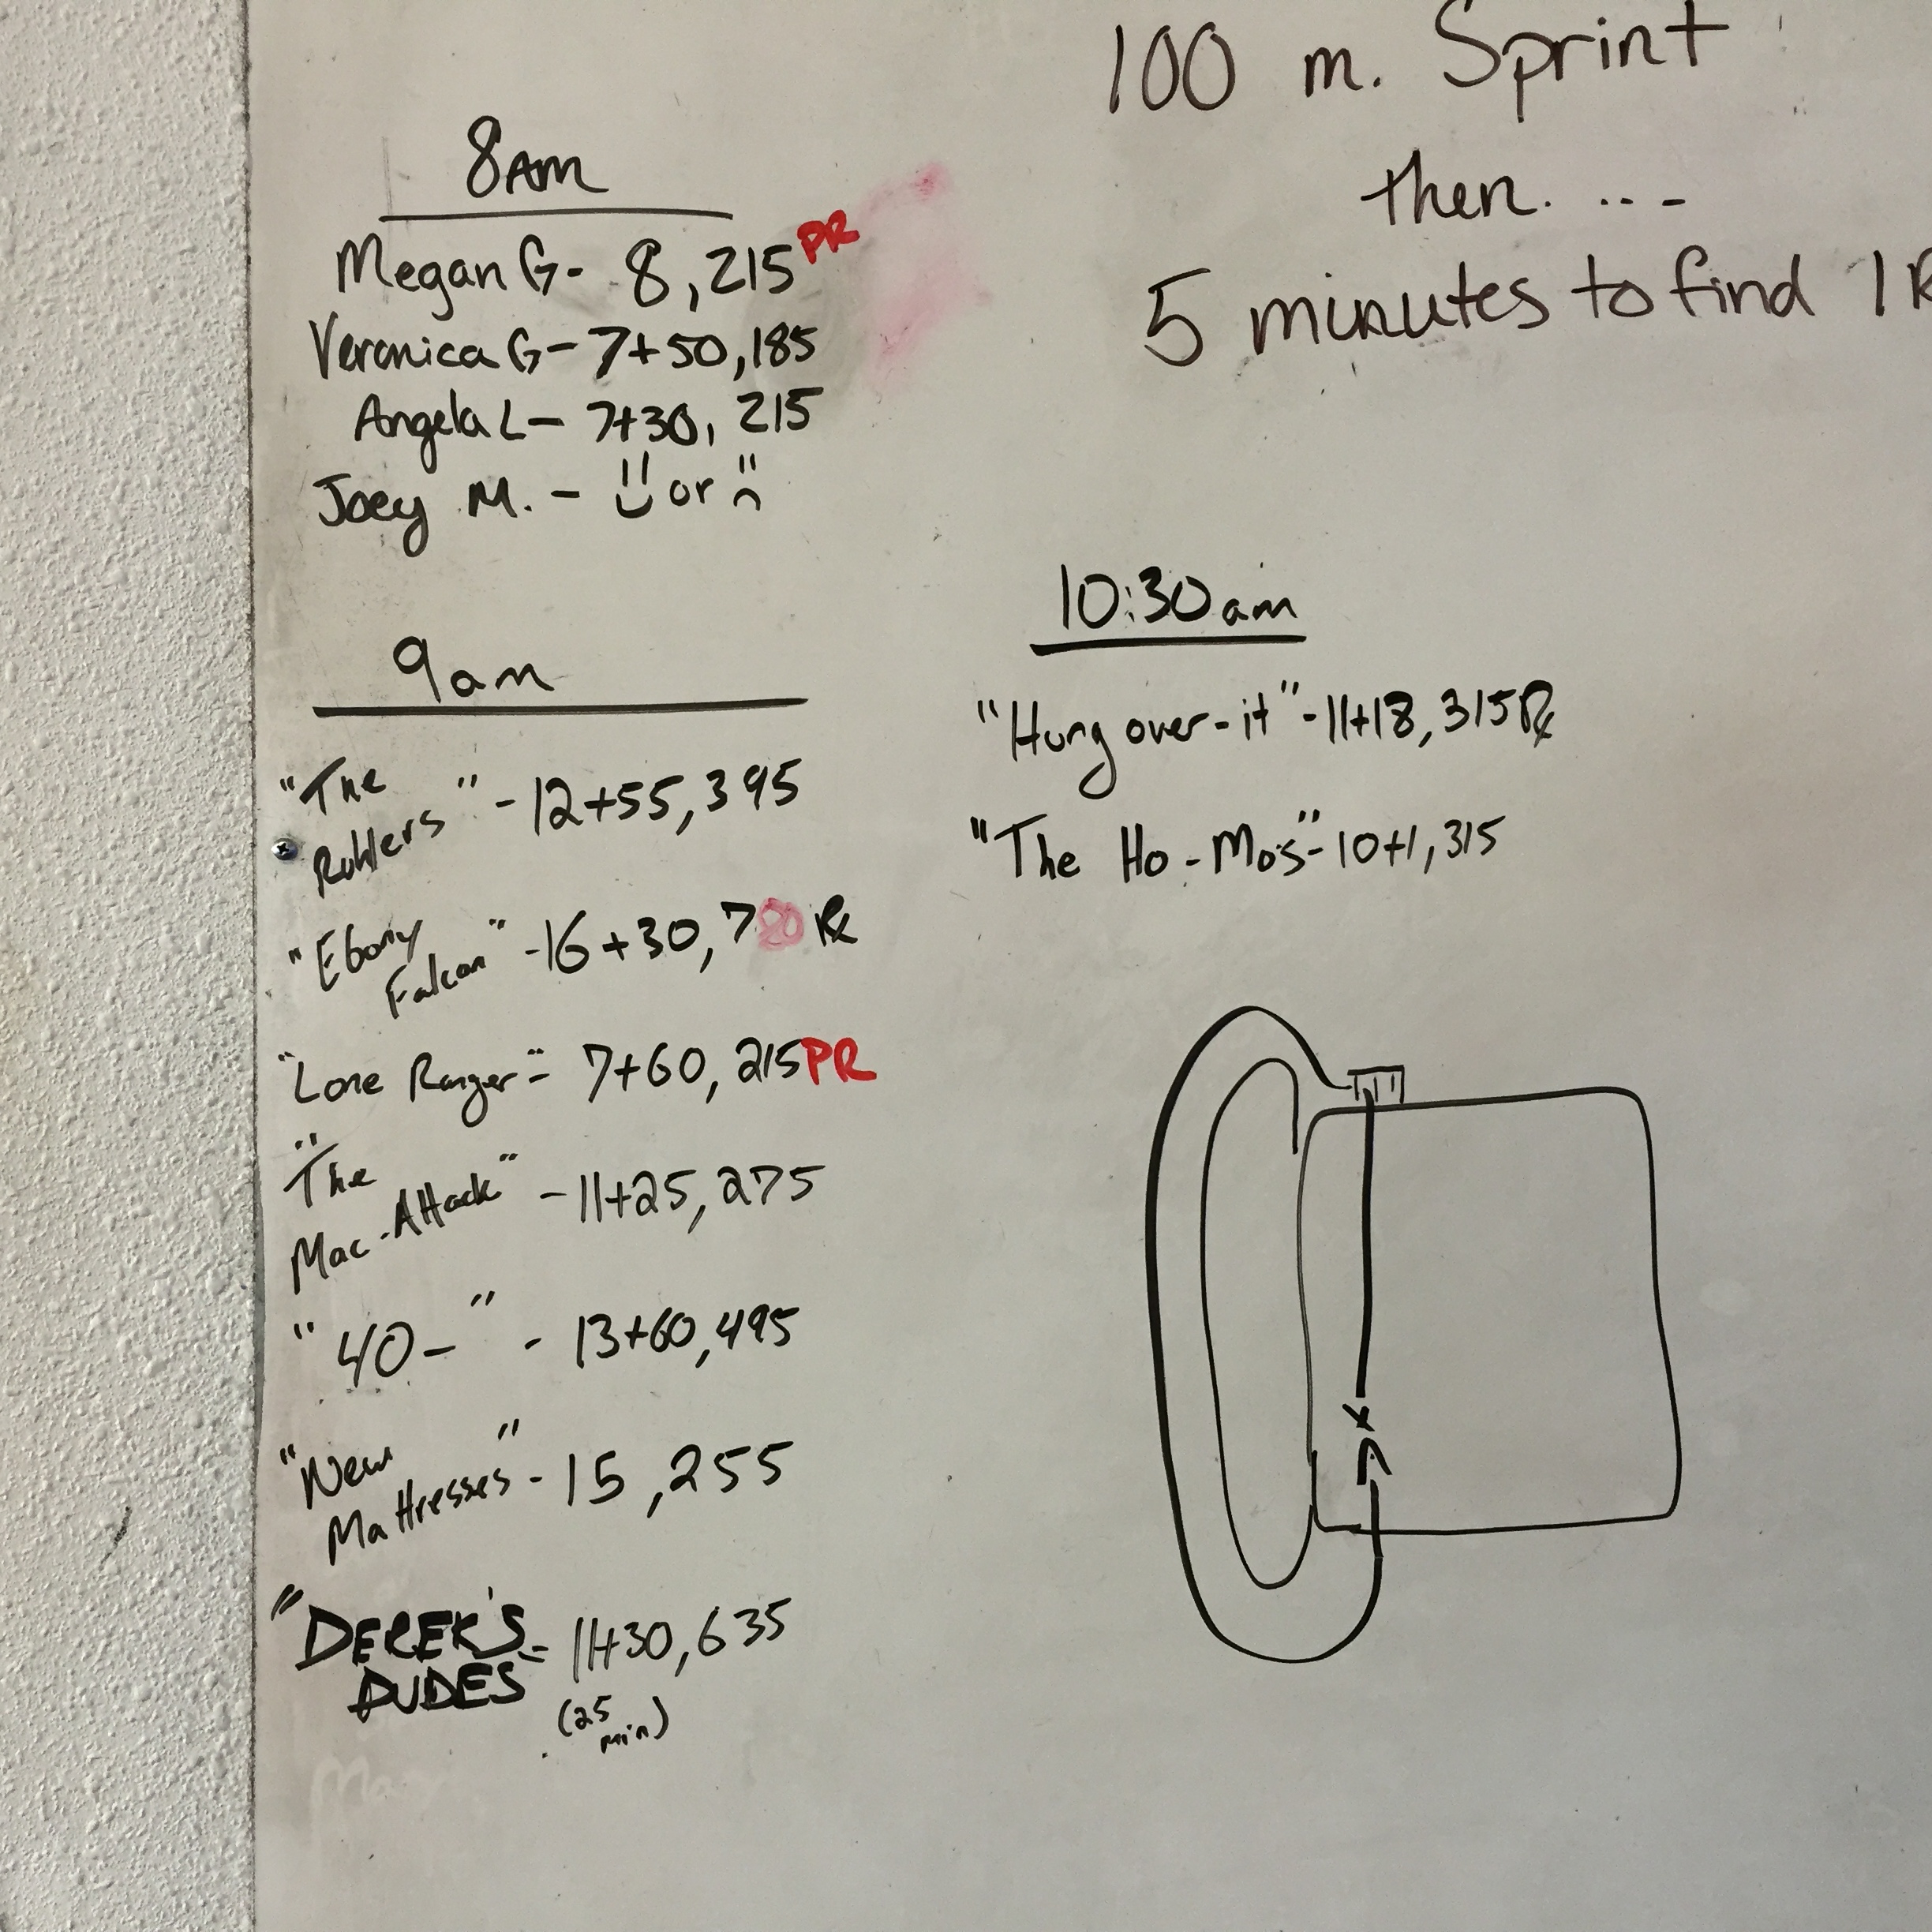 100 m. Sprint
then. ...
5 minutes to find 1
8AM
Megan G- 8,215 PR
Veronica G- 7+50,185
Angela L- 7+30, 215
Joey M. - or
9am
"The
Rohlers" - 12+55,395
"Ebony
Falcon" -16+30, Rx
"Lone Ranger" - 7+60, 215 PR
"The
Mac-Attack" - 11+25, 275
"40-" - 13+60,495
"New
Mattresses" - 15,255
"DEREK'S
DUDES - 11+30,635
(25
min)
10:30am
"Hung over-it" - 11+18, 315 Rx
"The Ho-Mo's" - 10+1, 315